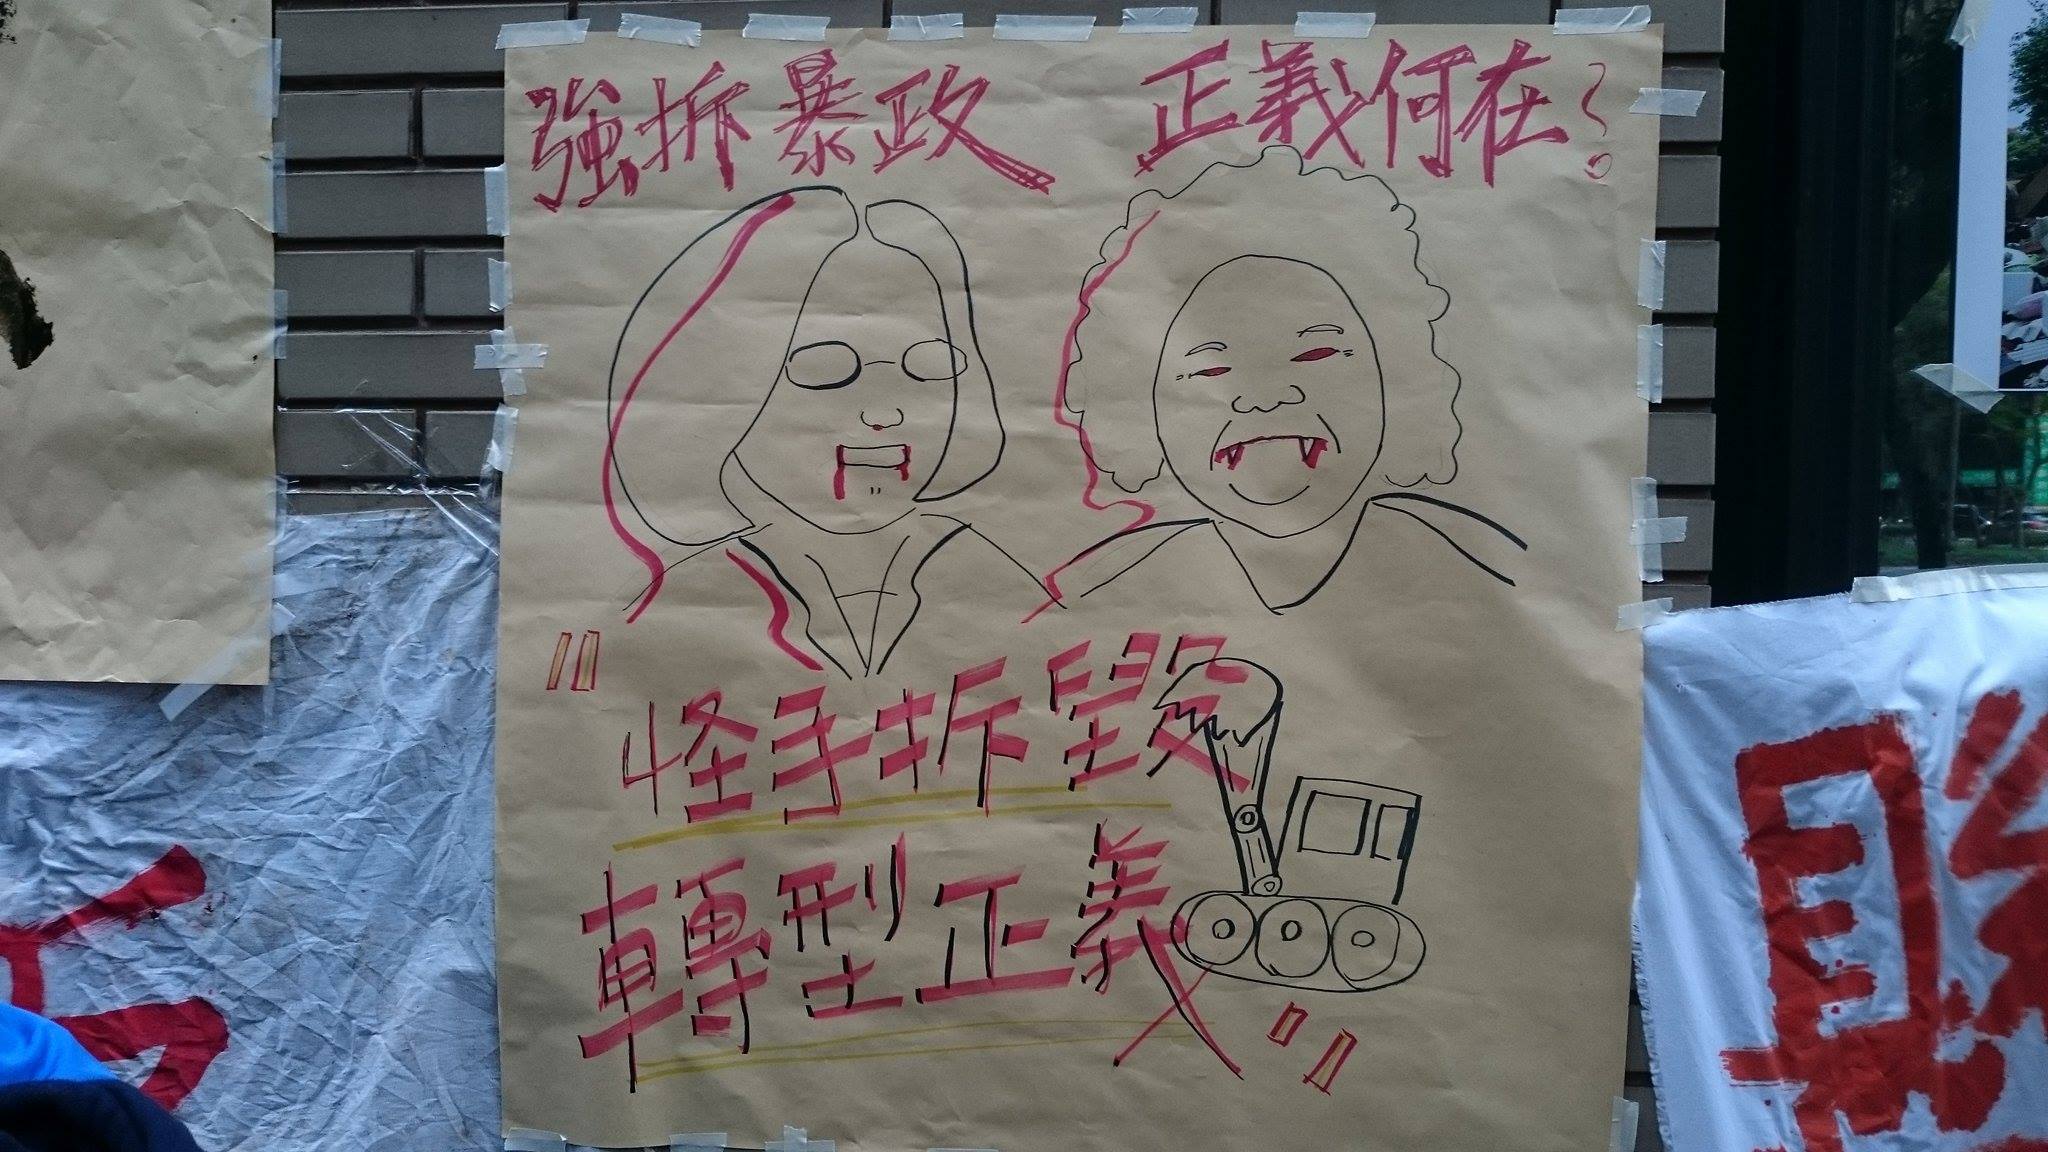 強拆暴政 正義何在?
"怪手拆毀
轉型正義"